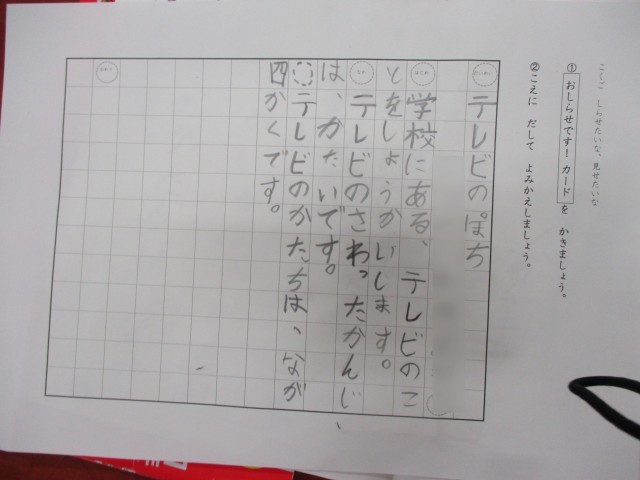 こくご しらせたいな、見せたいな
① おしらせです！カード を かきましょう。
② こえに だして よみかえしましょう。
テレビのぽち
学校にある、テレビのこ
とをしょうかいします。
テレビのさわったかんじ
は、かたいです。
テレビのかたちは、なが
四かくです。